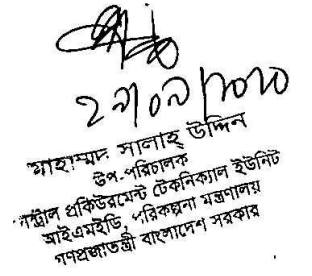 মোহাম্মদ সালাহ্ উদ্দিন
উপ-পরিচালক
সেন্ট্রাল প্রকিউরমেন্ট টেকনিক্যাল ইউনিট
আইএমইডি, পরিকল্পনা মন্ত্রণালয়
গণপ্রজাতন্ত্রী বাংলাদেশ সরকার